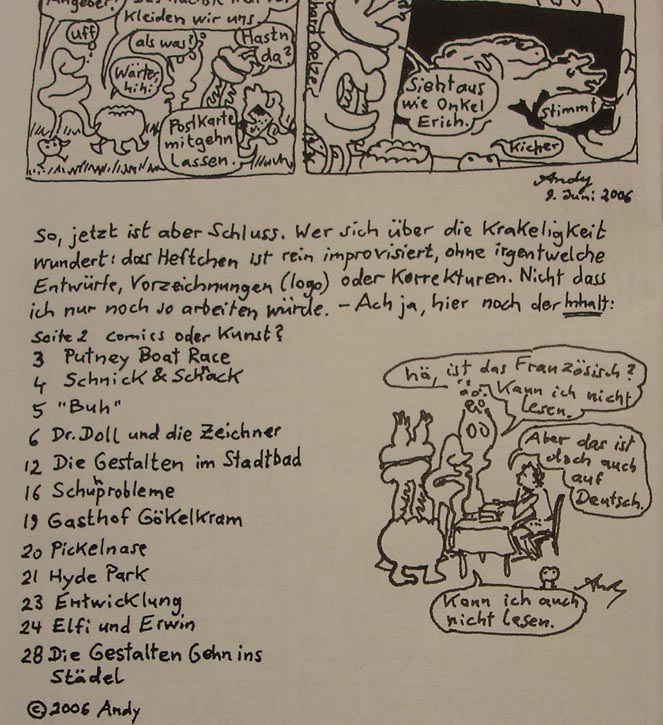 Angeber!
Kleiden wir uns.
Uff
als was?
Hastn
da?
Wärter,
hihi
Postkarte
mitgehn
lassen.
hard Oelze
Sieht aus
wie Onkel
Erich.
Stimmt
Kicher
Andy
9. Juni 2006
So, jetzt ist aber Schluss. Wer sich über die Krakeligkeit
wundert: das Heftchen ist rein improvisiert, ohne irgentwelche
Entwürfe, Vorzeichnungen (logo) oder Korrekturen. Nicht dass
ich nur noch so arbeiten würde. – Ach ja, hier noch der Inhalt:
Seite 2 Comics oder Kunst?
3 Putney Boat Race
4 Schnick & Schnack
5 "Buh"
6 Dr. Doll und die Zeichner
12 Die Gestalten im Stadtbad
16 Schuhprobleme
19 Gasthof Gökelkram
20 Pickelnase
21 Hyde Park
23 Entwicklung
24 Elfi und Erwin
28 Die Gestalten Gehn ins
Städel
© 2006 Andy
hä, ist das Französisch?
Kann ich nicht
lesen.
Aber das ist
doch auch
auf
Deutsch.
Kann ich auch
nicht lesen.
Andy